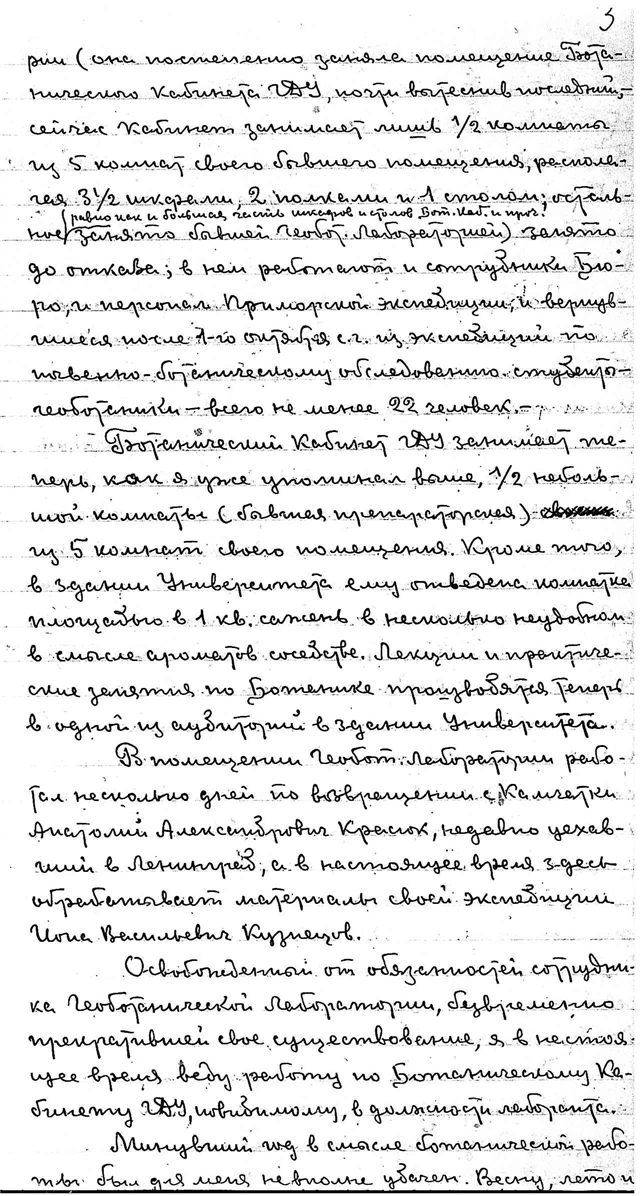 5
рии (она постепенно заняла помещение Бота-
нического Кабинета ГДУ, почти вытеснив последний,-
сейчас Кабинет занимает лишь 1/2 комнаты
из 5 комнат своего бывшего помещения, распола-
гая 3 1/2 шкафами, 2 полками и 1 столом; осталь-
(равно как и большая часть шкафов и столов Бот. Каб. и проч.
ное занято бывшей Геобот. Лабораторией) занято
до отказа; в нем работают и сотрудники Бю-
ро, и персонал Приморской экспедиции, и вернув-
шиеся после 1-го октября с.г. из экспедиций по
почвенно-ботаническому обследованию студенты-
геоботаники – всего не менее 22 человек.–
Ботанический Кабинет ГДУ занимает те-
перь, как я уже упоминал выше, 1/2 неболь-
шой комнаты (бывшая препараторская)
из 5 комнат своего помещения. Кроме того,
в здании Университета ему отведена комнатка
площадью в 1 кв. сажень в несколько неудобном
в смысле ароматов соседстве. Лекции и практиче-
ские занятия по Ботанике производятся теперь
в одной из аудиторий в здании Университета.
В помещении Геобот. Лаборатории рабо-
тал несколько дней по возвращении с Камчатки
Анатолий Александрович Красюк, недавно уехав-
ший в Ленинград, а в настоящее время здесь
обрабатывает материалы своей экспедиции
Иона Васильевич Кузнецов.
Освобожденный от обязанностей сотрудни-
ка Геоботанической Лаборатории, безвременно
прекратившей свое существование, я в настоя-
щее время веду работу по Ботаническому Ка-
бинету ГДУ, повидимому, в должности лаборанта.
Минувший год в смысле ботанической рабо-
ты был для меня не вполне удачен. Весну, лето и